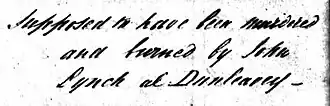 Supposed to have been murdered
and burned by John
Lynch at Dunleavys -